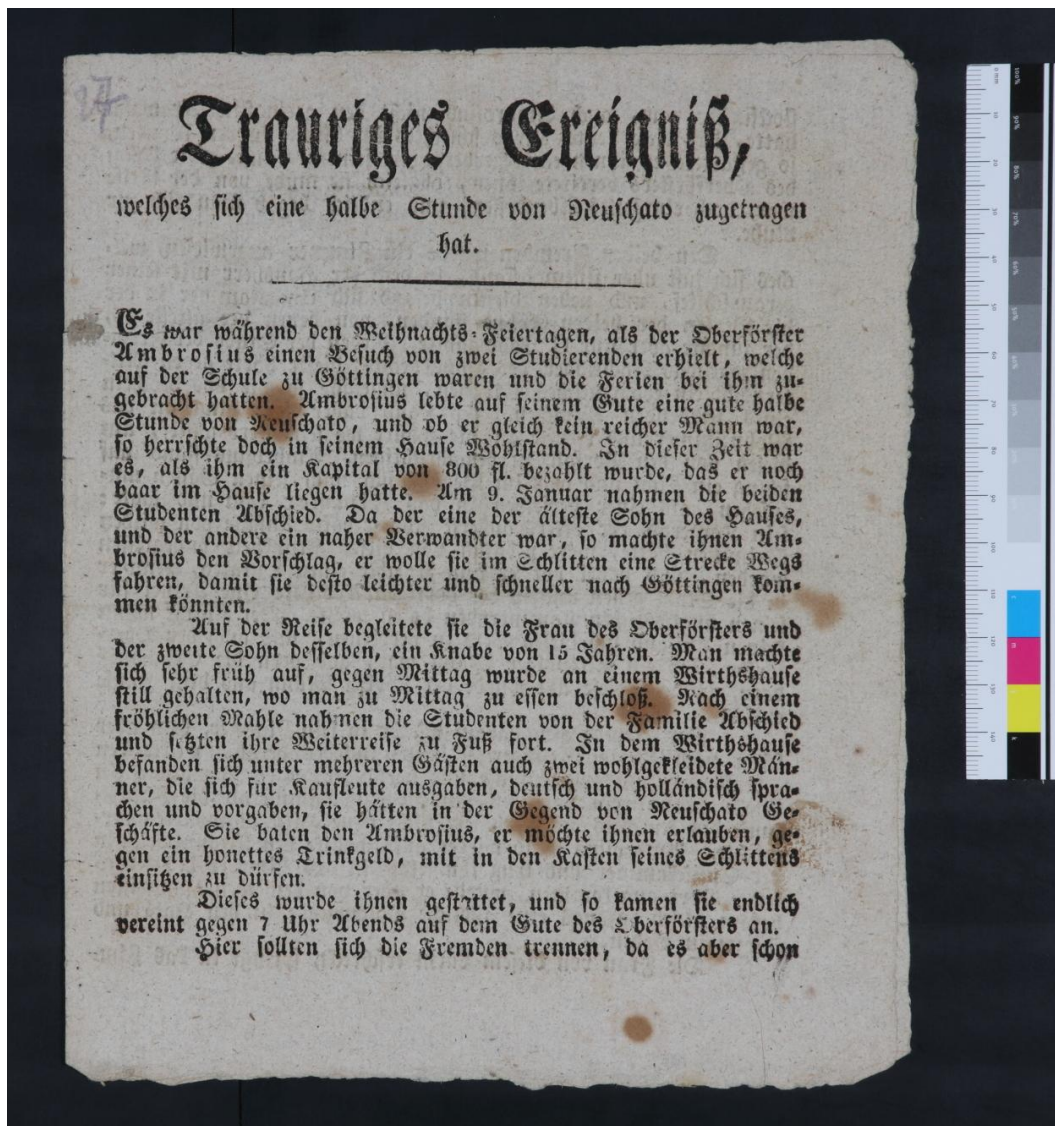 27
Trauriges Ereigniß,
welches sich eine halbe Stunde von Neuschato zugetragen
hat.
Es war während den Weihnachts-Feiertagen, als der Oberförster
Ambrosius einen Besuch von zwei Studierenden erhielt, welche
auf der Schule zu Göttingen waren und die Ferien bei ihm zu-
gebracht hatten. Ambrosius lebte auf seinem Gute eine gute halbe
Stunde von Neuschato, und ob er gleich kein reicher Mann war,
so herrschte doch in seinem Hause Wohlstand. In dieser Zeit war
es, als ihm ein Kapital von 800 fl. bezahlt wurde, das er noch
baar im Hause liegen hatte. Am 9. Januar nahmen die beiden
Studenten Abschied. Da der eine der älteste Sohn des Hauses,
und der andere ein naher Verwandter war, so machte ihnen Am-
brosius den Vorschlag, er wolle sie im Schlitten eine Strecke Wegs
fahren, damit sie desto leichter und schneller nach Göttingen kom-
men könnten.
Auf der Reise begleitete sie die Frau des Oberförsters und
der zweite Sohn desselben, ein Knabe von 15 Jahren. Man machte
sich sehr früh auf, gegen Mittag wurde an einem Wirthshause
still gehalten, wo man zu Mittag zu essen beschloß. Nach einem
fröhlichen Mahle nahmen die Studenten von der Familie Abschied
und setzten ihre Weiterreise zu Fuß fort. In dem Wirthshause
befanden sich unter mehreren Gästen auch zwei wohlgekleidete Män-
ner, die sich für Kaufleute ausgaben, deutsch und holländisch spra-
chen und vorgaben, sie hätten in der Gegend von Neuschato Ge-
schäfte. Sie baten den Ambrosius, er möchte ihnen erlauben, ge-
gen ein honettes Trinkgeld, mit in den Kasten seines Schlittens
einsitzen zu dürfen.
Dieses wurde ihnen gestattet, und so kamen sie endlich
vereint gegen 7 Uhr Abends auf dem Gute des Oberförsters an.
Hier sollten sich die Fremden trennen, da es aber schon